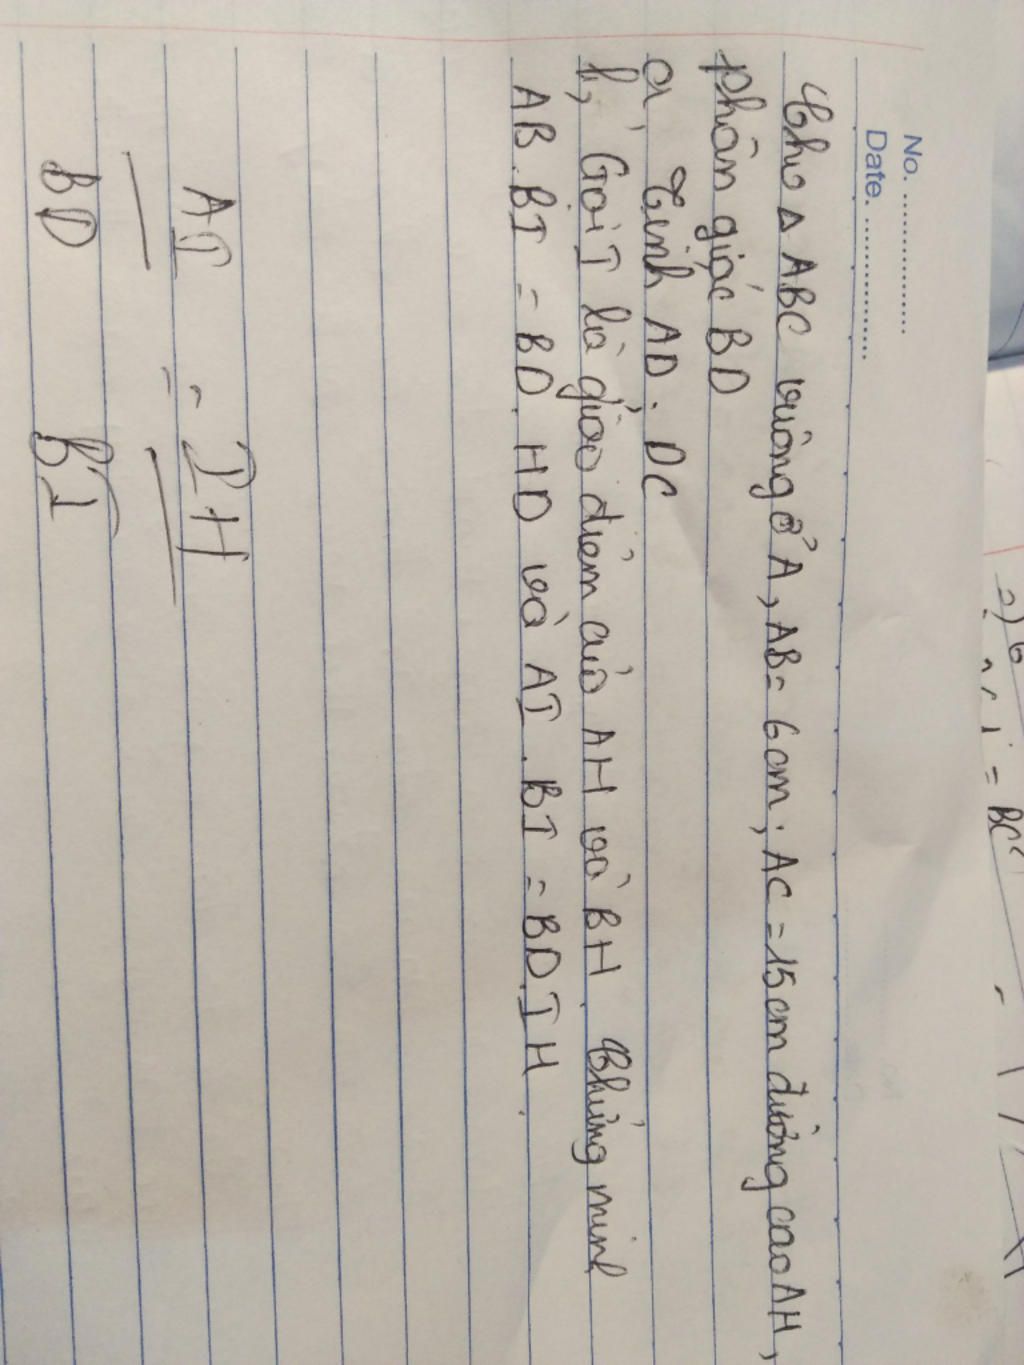 No. ................
Date. ................
Cho Δ ABC vuông ở A, AB = 6cm ; AC = 15cm đường cao AH,
phân giác BD
a, Tính AD. DC
b, Gọi I là giao điểm của AH và BH. Chứng minh
AB. BI = BD. HD và AI. BI = BD. IH.
AI = IH
BD BI
2)
= BC